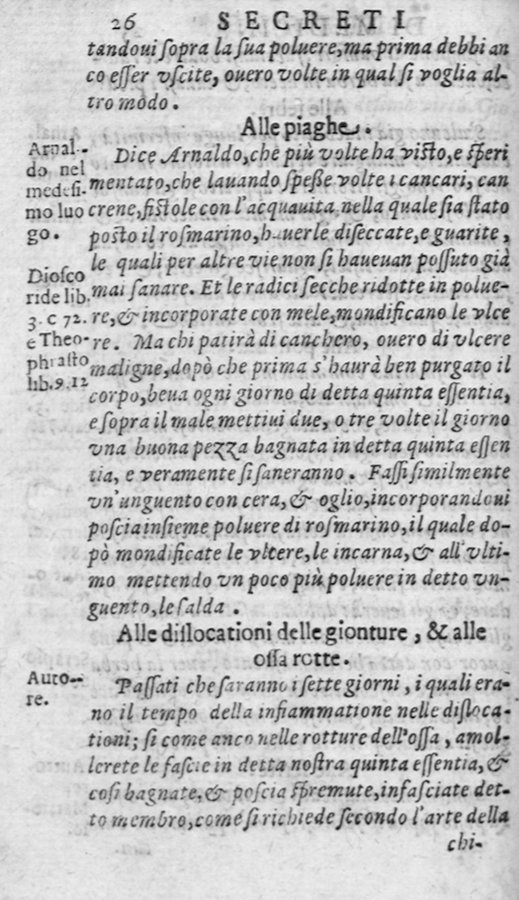 26 SECRETI
tandoui ſopra la ſua poluere, ma prima debbi an
co eſſer vſcite, ouero volte in qual ſi voglia al-
tro modo.
Alle piaghe.
Arnal-
do nel
medeſi-
mo luo
go.
Dice Arnaldo, che più volte ha viſto, e ſperi
mentato, che lauando ſpeſſe volte i cancari, can
crene, fiſtole con l'acquauita nella quale ſia ſtato
poſto il roſmarino, hauerle diſeccate, e guarite,
le quali per altre vie non ſi haueuan poſſuto già
mai ſanare. Et le radici ſecche ridotte in polue-
re, & incorporate con mele, mondificano le vlce
re. Ma chi patirà di canchero, ouero di vlcere
maligne, dopò che prima s'haurà ben purgato il
corpo, beua ogni giorno di detta quinta eſſentia,
e ſopra il male mettiui due, o tre volte il giorno
vna buona pezza bagnata in detta quinta eſſen
tia, e veramente ſi ſaneranno. Faſſi ſimilmente
vn'unguento con cera, & oglio, incorporandoui
poſcia inſieme poluere di roſmarino, il quale do-
pò mondificate le vlcere, le incarna, & all'vlti-
mo mettendo vn poco più poluere in detto vn-
guento, le ſalda.
Dioſco
ride lib.
3. c 72.
e Theo-
phraſto
lib. 9. 12
Alle diſlocationi delle gionture, & alle
oſſa rotte.
Auto-
re.
Paſſati che ſaranno i ſette giorni, i quali era-
no il tempo della infiammatione nelle diſloca-
tioni; ſi come anco nelle rotture dell'oſſa, amol-
lerete le faſcie in detta noſtra quinta eſſentia, &
coſi bagnate, & poſcia ſpremute, infaſciate det-
to membro, come ſi richiede ſecondo l'arte della
chi-